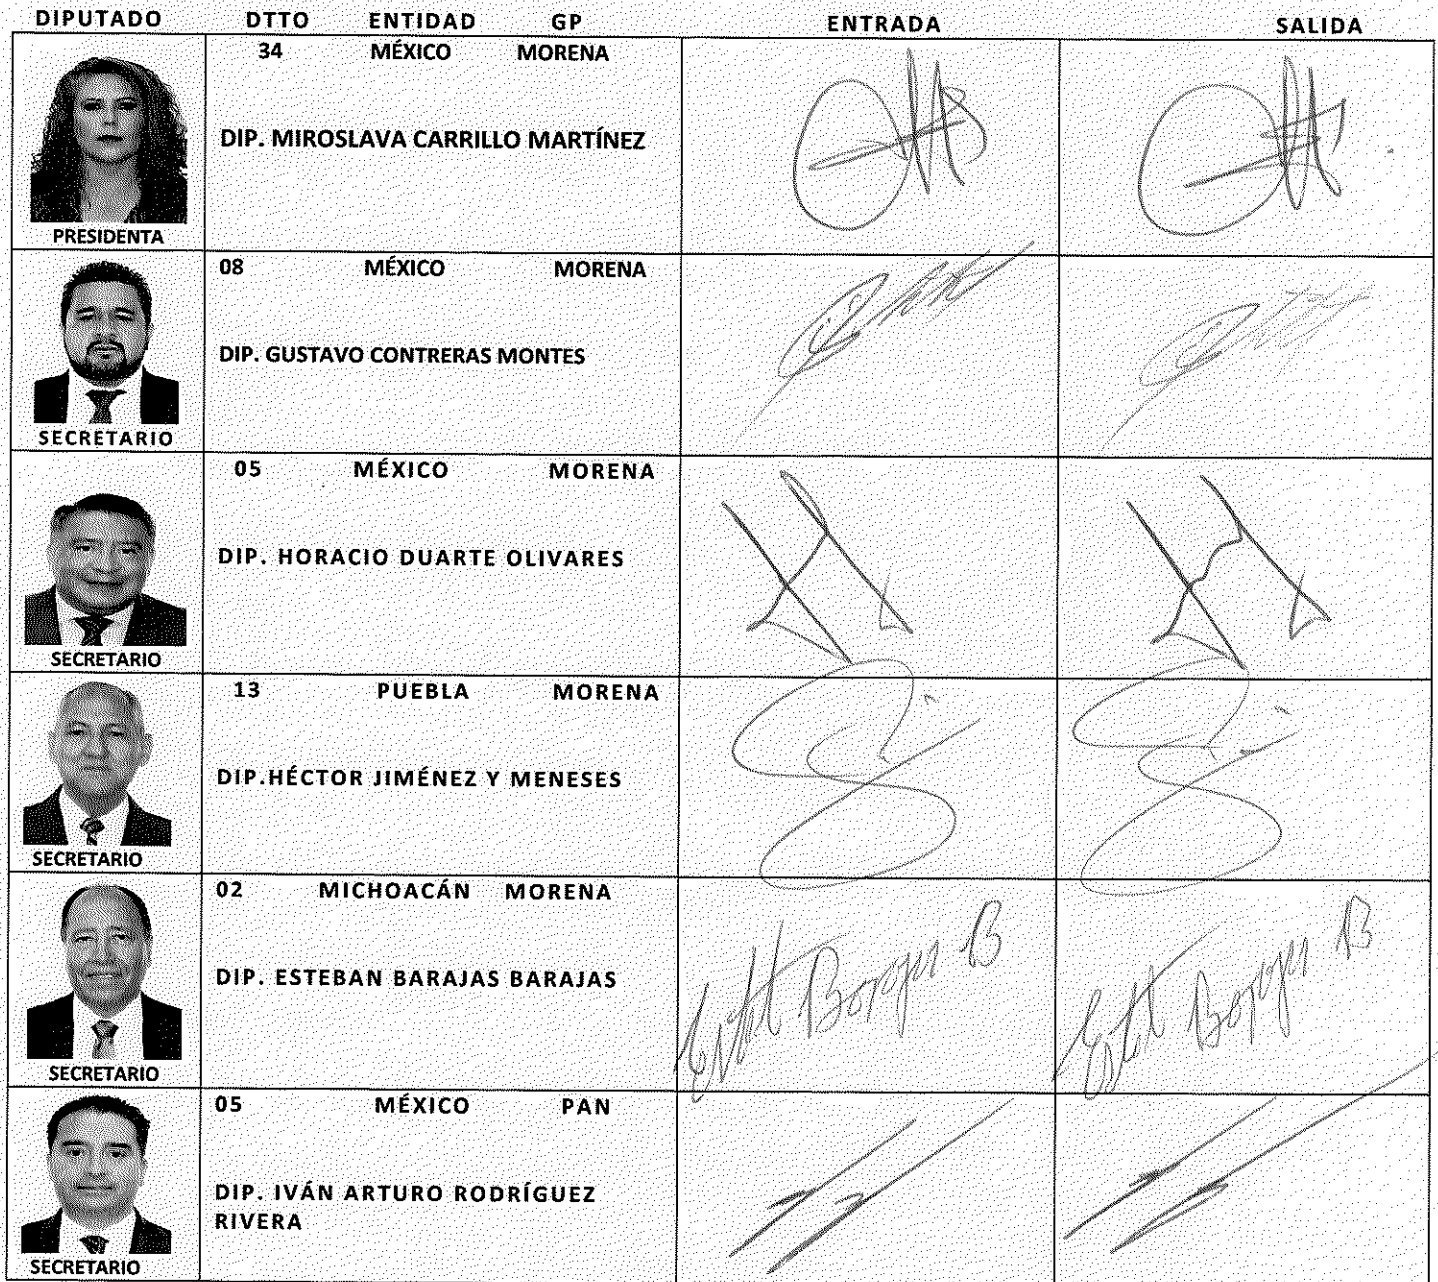 DIPUTADO DTTO ENTIDAD GP ENTRADA SALIDA
34 MÉXICO MORENA
DIP. MIROSLAVA CARRILLO MARTÍNEZ
PRESIDENTA
08 MÉXICO MORENA
DIP. GUSTAVO CONTRERAS MONTES
SECRETARIO
05 MÉXICO MORENA
DIP. HORACIO DUARTE OLIVARES
SECRETARIO
13 PUEBLA MORENA
DIP.HÉCTOR JIMÉNEZ Y MENESES
SECRETARIO
02 MICHOACÁN MORENA
DIP. ESTEBAN BARAJAS BARAJAS
SECRETARIO
05 MÉXICO PAN
DIP. IVÁN ARTURO RODRÍGUEZ
RIVERA
SECRETARIO